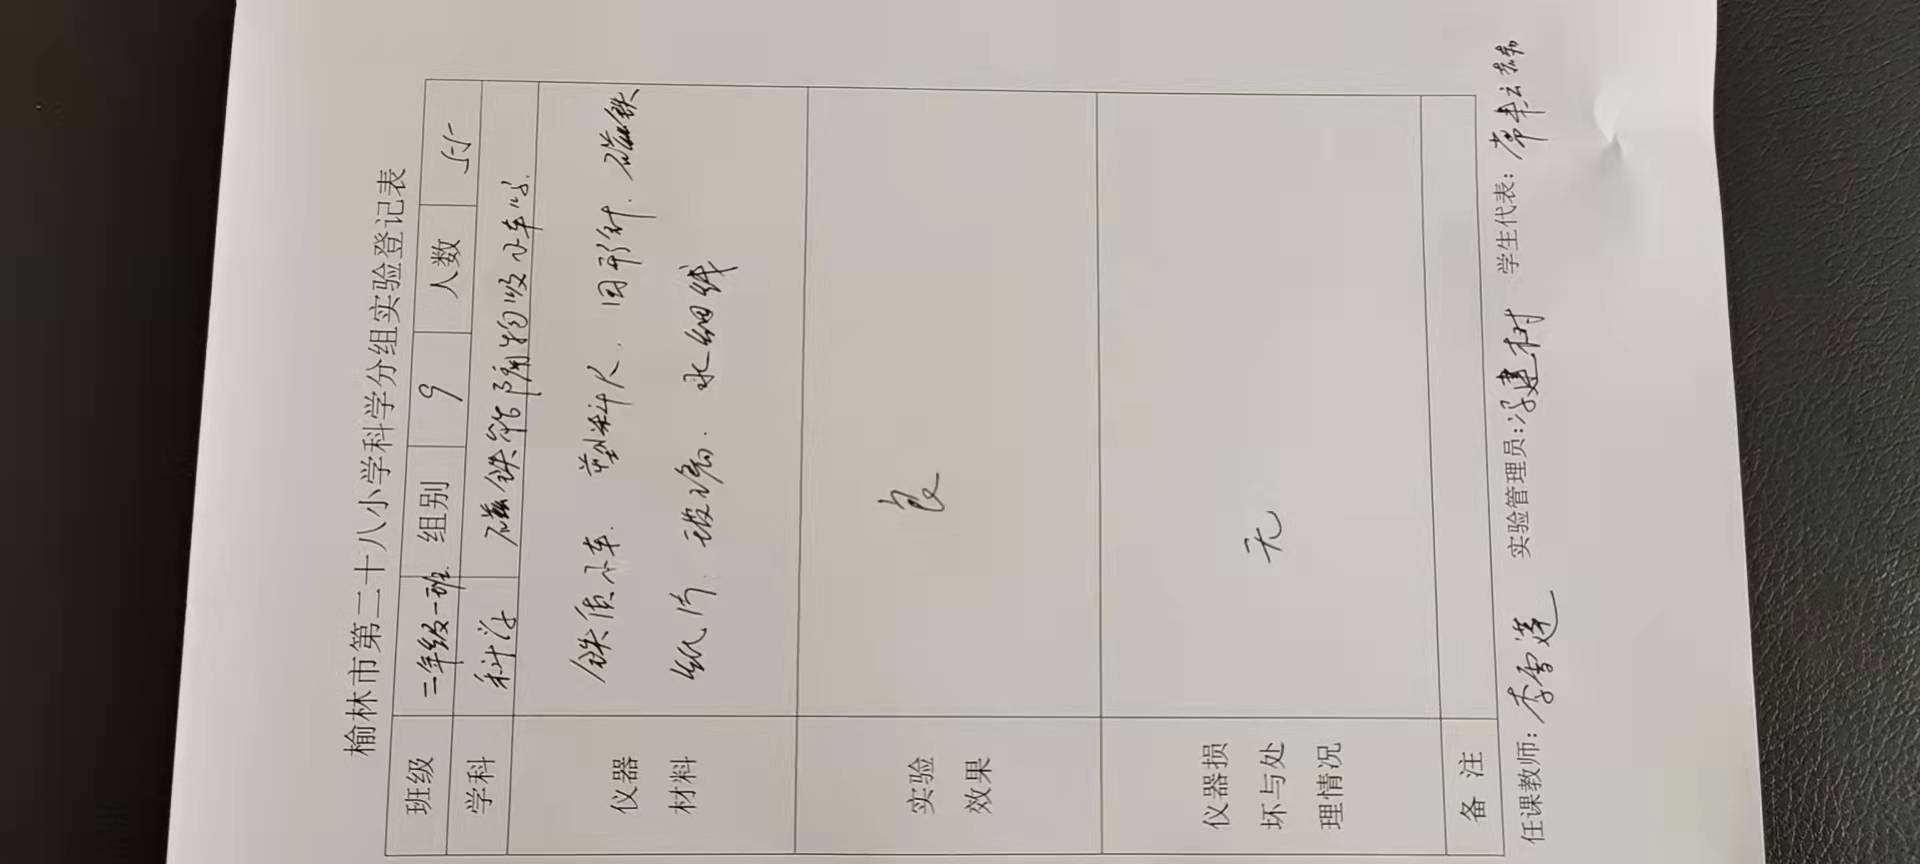 榆林市第二十八小学科学分组实验登记表
班级 二年级一班 组别 9 人数 55
学科 科学 磁铁能隔物吸小车吗.
仪器材料 铁质小车. 塑料尺、回形针. 磁铁
纸片、玻璃、水 细线
实验效果 良
仪器损坏与处理情况 无
备注
任课教师: 李雪莲 实验管理员: 冯建树 学生代表: